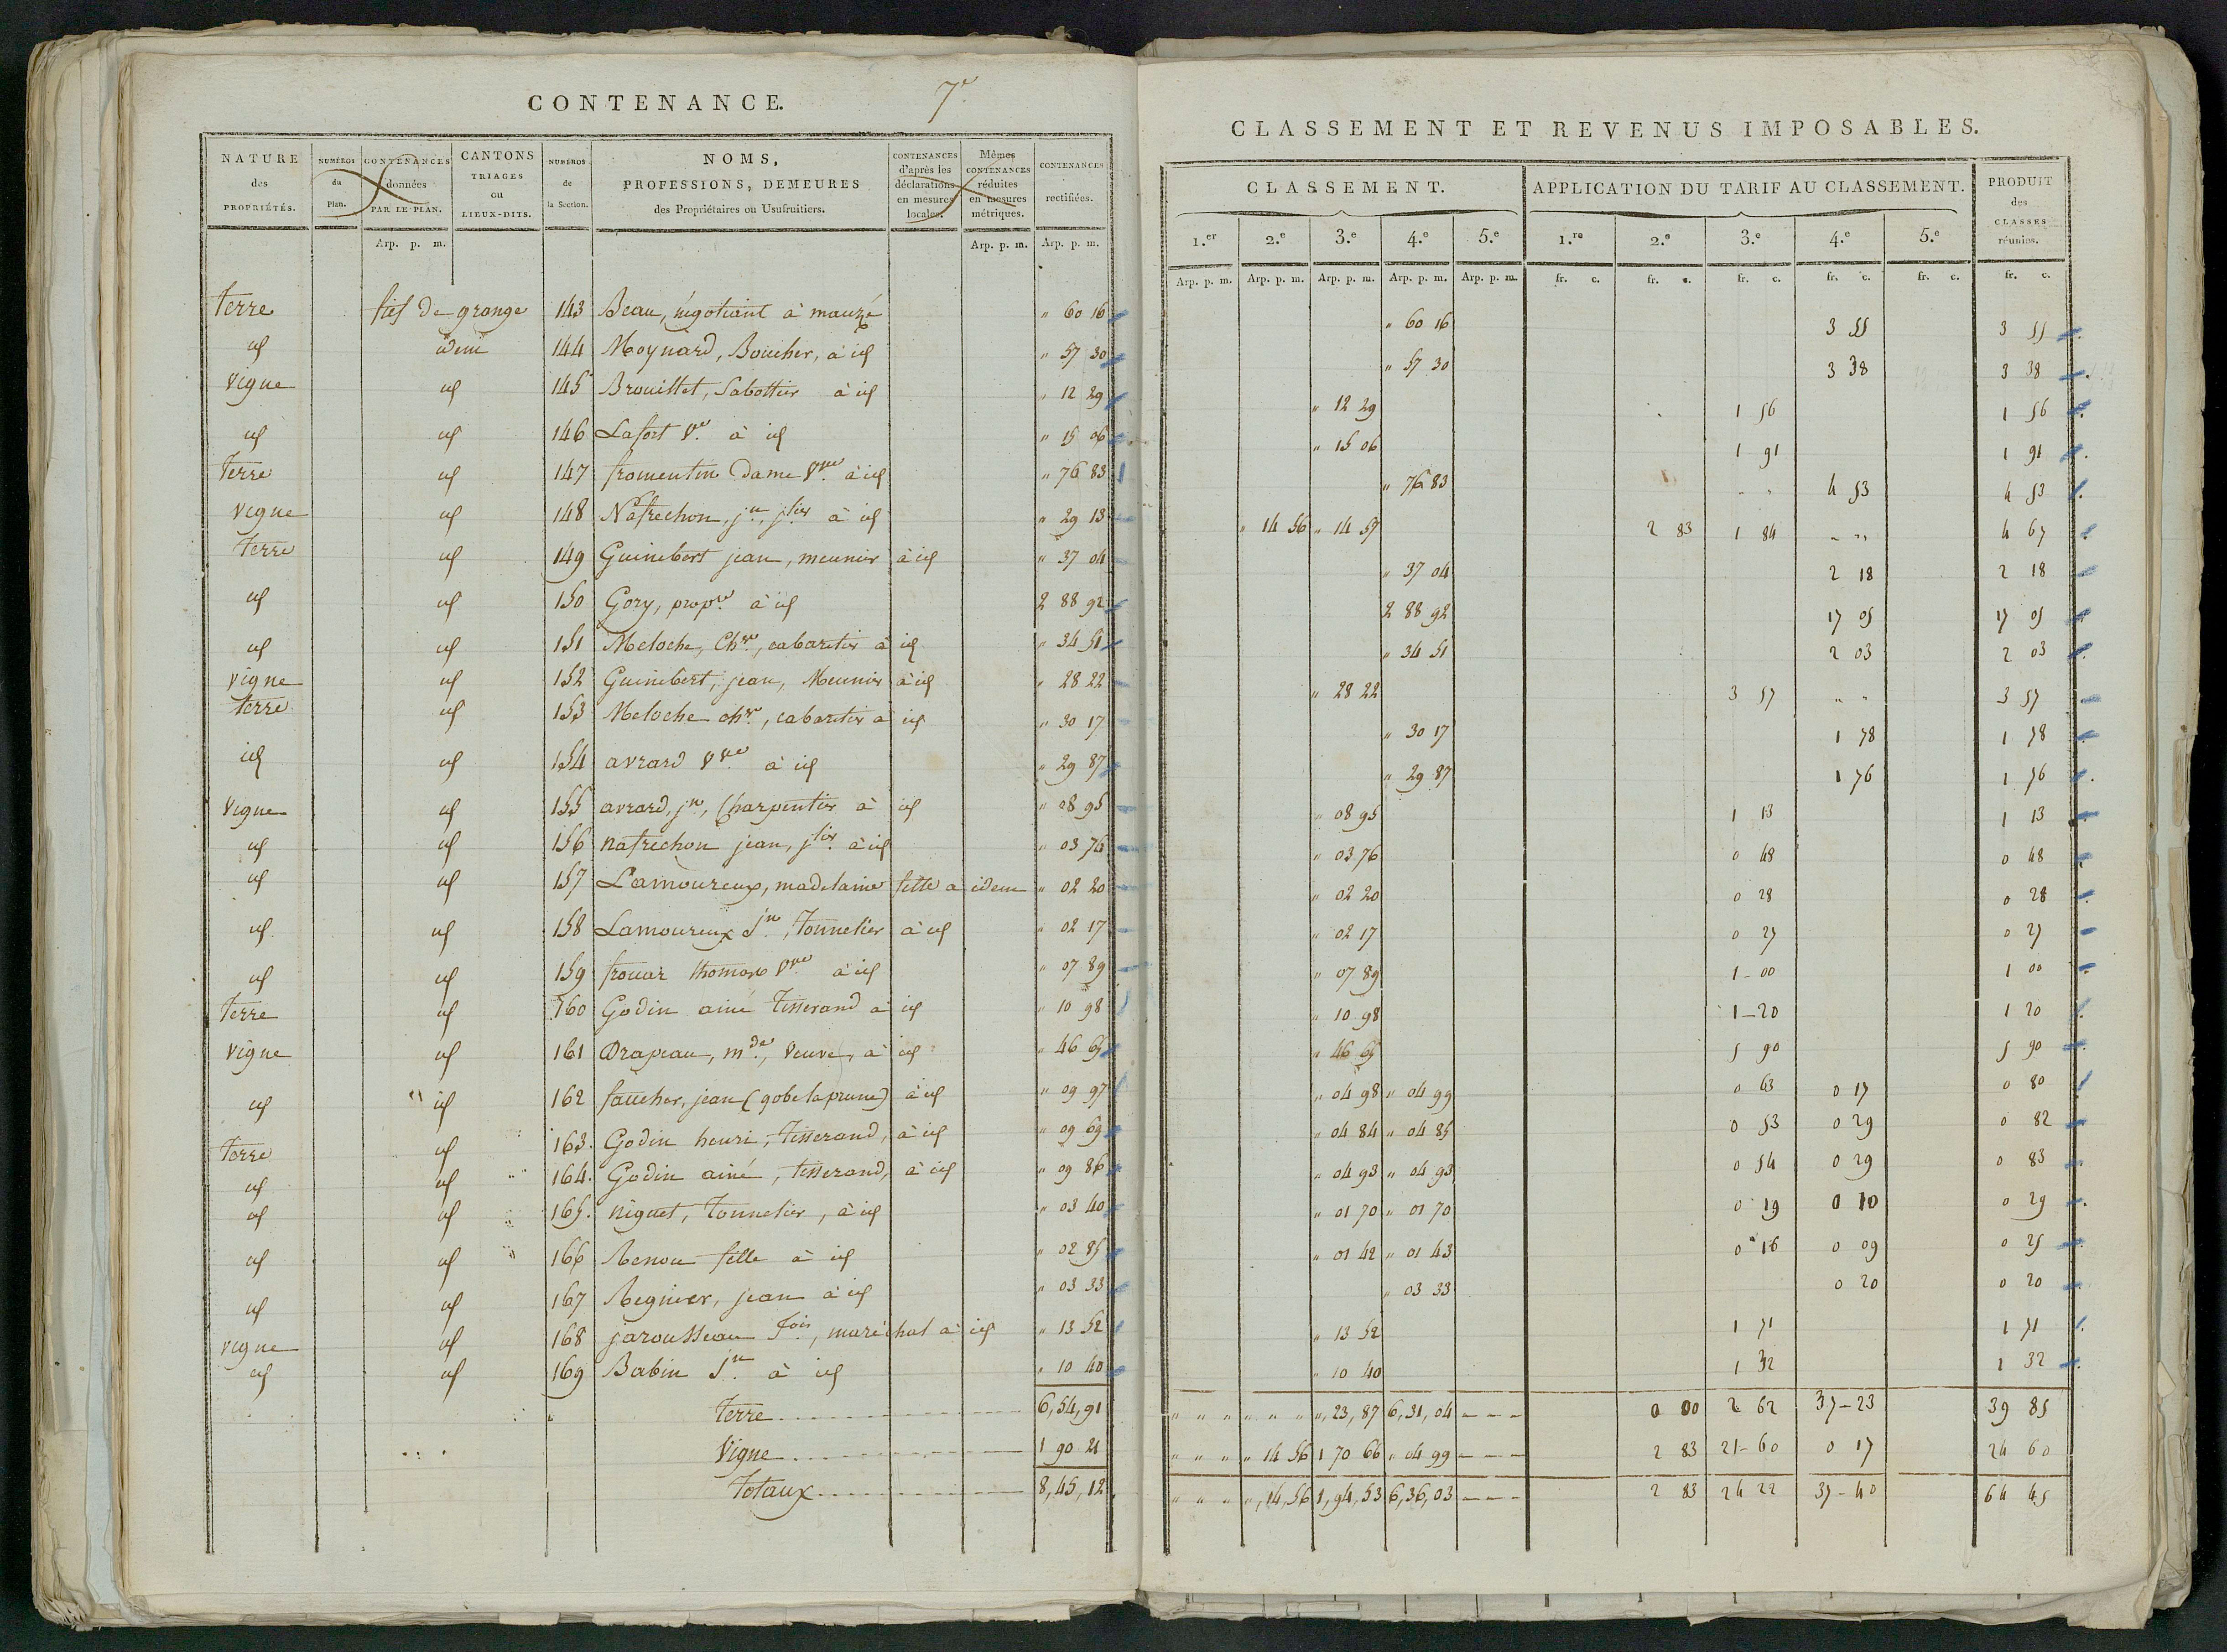 CONTENANCE. 7e
NATURE des PROPRIÉTÉS. | NUMÉROS du Plan. | CONTENANCES données PAR LE PLAN. | CANTONS TRIAGES ou LIEUX-DITS. | NUMÉROS de la Section. | NOMS, PROFESSIONS, DEMEURES des Propriétaires ou Usufruitiers. | CONTENANCES d'après les déclarations en mesures locales. | Mêmes CONTENANCES réduites en mesures métriques. | CONTENANCES rectifiées.
Arp. p. m. | Arp. p. m. | Arp. p. m.
Terre fief de grange 143 Beau, négotiant à mauzé " 60 16
id idem 144 Moynard, Boucher, à id " 57 30
Vigne id 145 Brouillet, Sabottier à id " 12 29
id id 146 Lafort Ve. à id " 15 06
Terre id 147 fromentin Dame Vve à id " 76 83
Vigne id 148 Nafrechon, jn, jlier à id " 29 13
Terre id 149 Guinebert jean, meunier à id " 37 04
id id 150 Gory, propre. à id 2 88 92
id id 151 Meloche, Chre., cabaretier à id " 34 51
Vigne id 152 Guinebert, jean, Meunier à id " 28 22
Terre id 153 Meloche chre., cabaretier à id " 30 17
id id 154 avrard Vve à id " 29 87
Vigne id 155 avrard, jn, Charpentier à id " 08 95
id id 156 nafrechon jean, jlier. à id " 03 76
id id 157 Lamoureux, madelaine fille a idem " 02 20
id id 158 Lamoureux Jn., Tonnelier à id " 02 17
id id 159 frouar thomas Vve à id " 07 89
Terre id 160 Godin ainé Tisserand à id " 10 98
Vigne id 161 Drapeau, mde., Veuve, à id " 46 65
id id 162 faucher, jean (gobe la prune) à id " 09 97
Terre id 163. Godin henri, Tisserand, à id " 09 69
id id 164. Godin ainé, Tisserand, à id " 09 86
id id 165. niguet, Tonnelier, à id " 03 40
id id 166 Renou fille à id " 02 85
id id 167 Regnier, jean à id " 03 33
Vigne id 168 jarousseau fois, maréchal à id " 13 52
id id 169 Babin Jn. à id " 10 40
Terre 6,54,91
Vigne 1 90 21
Totaux 8,45,12
CLASSEMENT ET REVENUS IMPOSABLES.
CLASSEMENT. | APPLICATION DU TARIF AU CLASSEMENT. | PRODUIT des CLASSES réunies.
1.er | 2.e | 3.e | 4.e | 5.e | 1.re | 2.e | 3.e | 4.e | 5.e
Arp. p. m. | Arp. p. m. | Arp. p. m. | Arp. p. m. | Arp. p. m. | fr. c. | fr. c. | fr. c. | fr. c. | fr. c. | fr. c.
" 60 16 3 55 3 55
" 57 30 3 38 3 38
" 12 29 1 56 1 56
" 15 06 1 91 1 91
" 76 83 " " 4 53 4 53
" 14 56 " 14 57 2 83 1 84 " " 4 67
" 37 04 2 18 2 18
2 88 92 17 05 17 05
" 34 51 2 03 2 03
" 28 22 3 57 " " 3 57
" 30 17 1 78 1 78
" 29 87 1 76 1 76
" 08 95 1 13 1 13
" 03 76 0 48 0 48
" 02 20 0 28 0 28
" 02 17 0 27 0 27
" 07 89 1-00 1 00
" 10 98 1-20 1 20
" 46 65 5 90 5 90
" 04 98 " 04 99 0 63 0 17 0 80
" 04 84 " 04 85 0 53 0 29 0 82
" 04 93 " 04 93 0 54 0 29 0 83
" 01 70 " 01 70 0 19 0 10 0 29
" 01 42 " 01 43 0 16 0 09 0 25
" 03 33 0 20 0 20
" 13 52 1 71 1 71
" 10 40 1 32 1 32
" " " " " " ", 23, 87 6, 31, 04 - - - 0 00 2 62 37-23 39 85
" " " " 14 56 1 70 66 " 04 99 - - - 2 83 21-60 0 17 24 60
" " " ", 14, 56 1, 94, 53 6, 36, 03 - - - 2 83 24 22 37-40 64 45